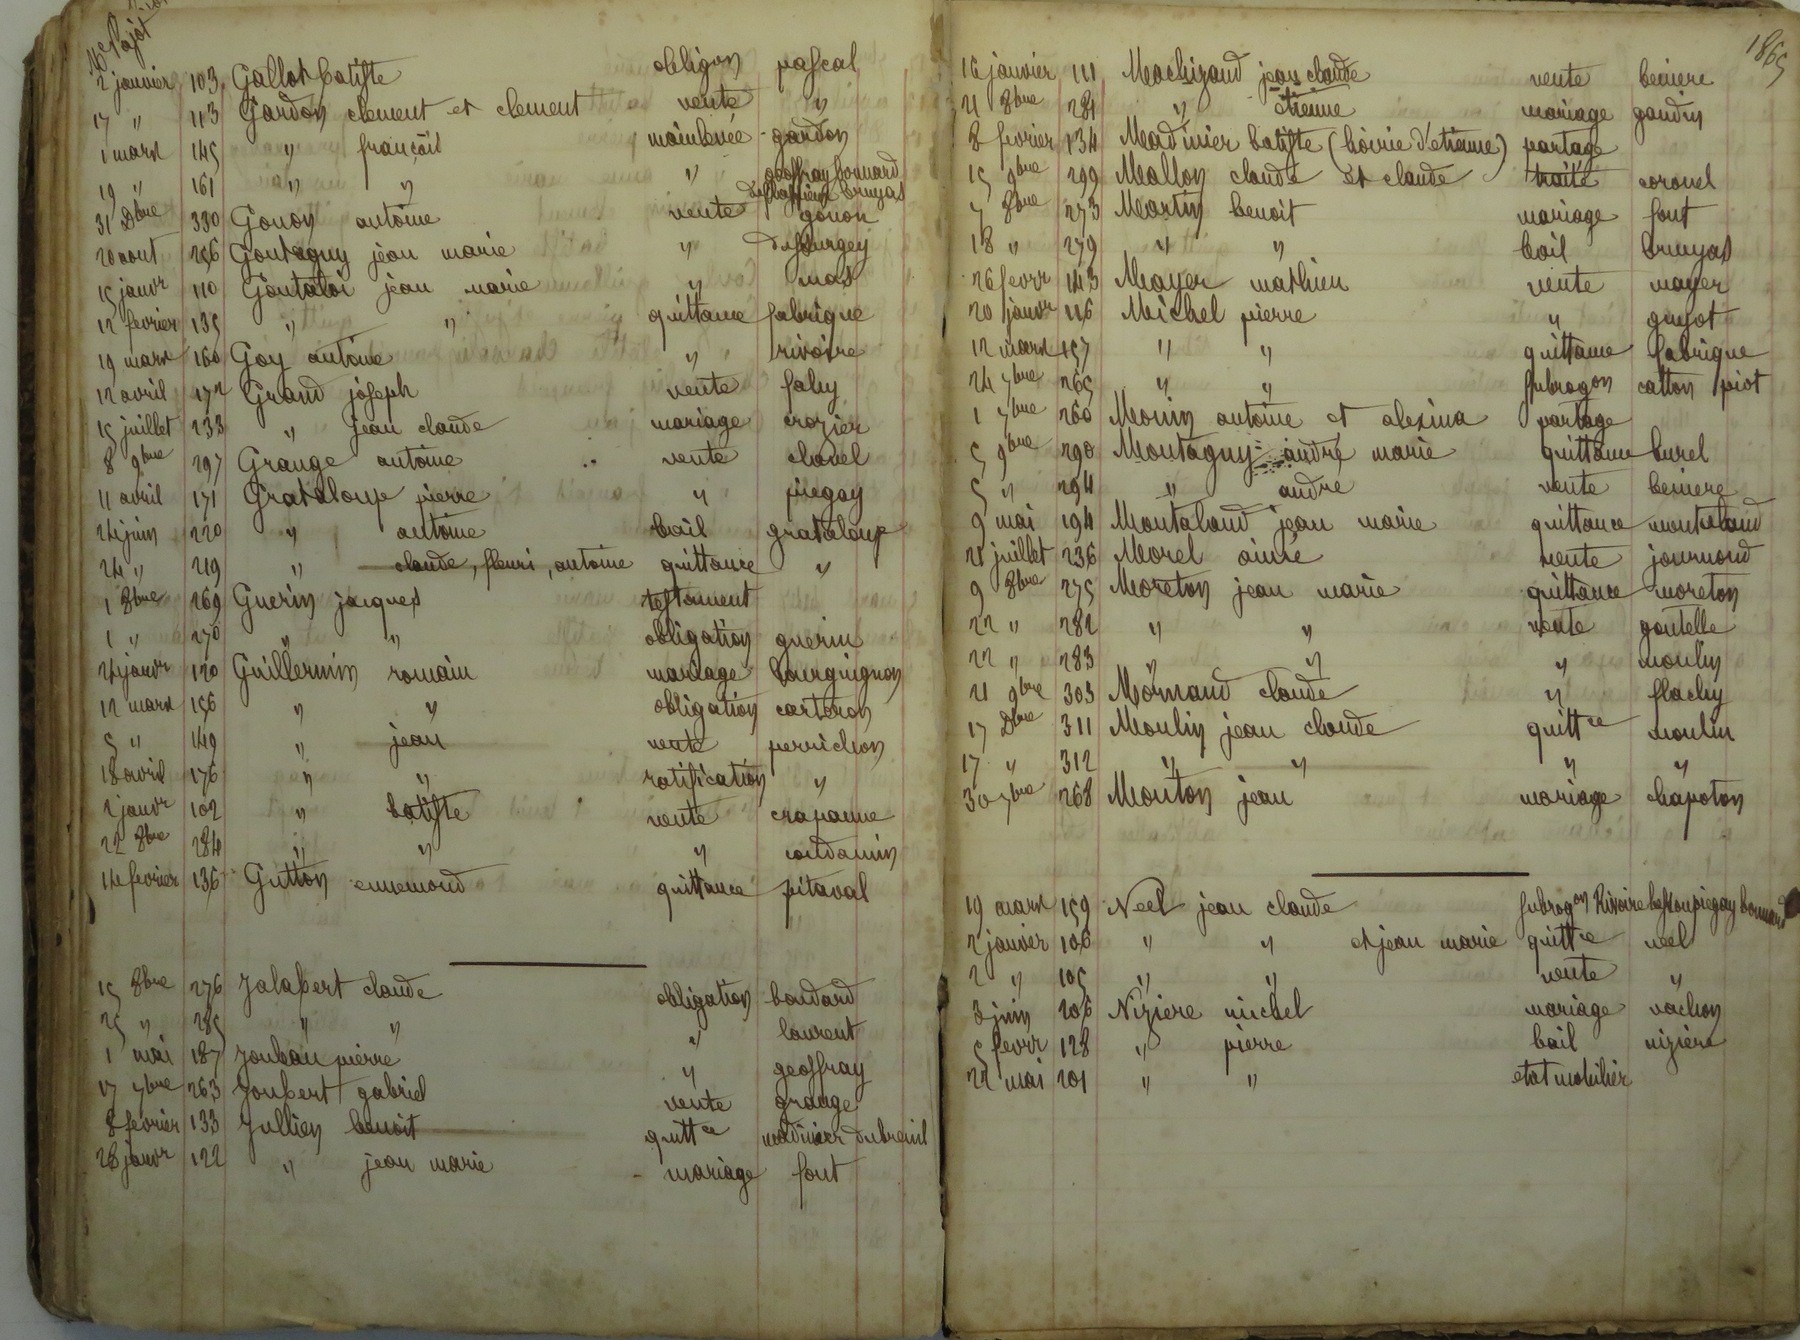 Me Pajot
2 janvier 103 Gallot batiste obligon pascal
17 " 113 Gardon clement et clement vente "
1 mars 145 " françois mainlevée gardon
19 " 161 " " " geoffray bonnard
bruyas
31 Dbre 330 Gonon antoine vente gonon
20 aout 256 Gontagny jean marie " dufourgey
15 janvr 110 Goutaloi jean marie " mas
12 fevrier 135 " " quittance fabrique
19 mars 160 Goy antoine " rivoire
12 avril 172 Grand joseph vente faby
15 juillet 233 " jean claude mariage crozier
8 9bre 297 Grange antoine vente clavel
11 avril 171 Grataloup pierre " piegay
24 juin 220 " antoine bail grataloup
24 " 219 " claude, fleuri, antoine quittance "
1 8bre 269 Guerin jacques testament
1 " 270 " " obligation guerin
24 janvr 120 Guillermin romain mariage bourguignon
12 mars 156 " " obligation carteron
5 " 149 " jean vente perrichon
18 avril 176 " " ratification "
2 janvr 102 " batiste vente craponne
22 8bre 284 " " "
14 fevrier 136 Gutton ennemond quittance pitaval
15 8bre 276 Jalabert claude obligation boudard
25 " 285 " " " laurent
1 mai 187 Jouban pierre " geoffray
17 7bre 263 Joubert gabriel vente grange
8 fevrier 133 Jullien benoit quittce madinier dubreuil
28 janvr 122 " jean marie mariage font
1865
16 janvier 111 Machizaud jean claude vente beniere
21 8bre 281 " etienne mariage gaudin
8 fevrier 134 Madinier batiste (hoirie d'etienne) partage
15 9bre 299 Mallon claude et claude traité coronel
7 8bre 273 Martin benoit mariage font
18 " 279 " " bail bruyas
26 fevr 143 Mayer mathieu vente mayer
20 janvr 116 Michel pierre " guyot
12 mars 157 " " quittance fabrique
24 7bre 265 " " subrogon catton piot
1 7bre 260 Morin antoine et alexina partage
5 9bre 290 Montagny andré marie quittance burel
5 " 294 " andre vente beniere
9 mai 194 Montaland jean marie quittance montaland
21 juillet 236 Morel aimé vente journoud
9 8bre 275 Moreton jean marie quittance moreton
22 " 282 " " vente goutelle
22 " 283 " " " moulin
21 9bre 303 Mornand claude " flachy
17 Dbre 311 Moulin jean claude quittce moulin
17 " 312 " " " "
30 7bre 268 Mouton jean mariage chapoton
19 mars 159 Neel jean claude subrogon Rivoire piegay bonnard
2 janvier 106 " " et jean marie quittce neel
2 " 105 " " vente "
3 juin 206 Niziere michel mariage vachon
5 fevr 128 " pierre bail niziere
22 mai 201 " " etat mobilier